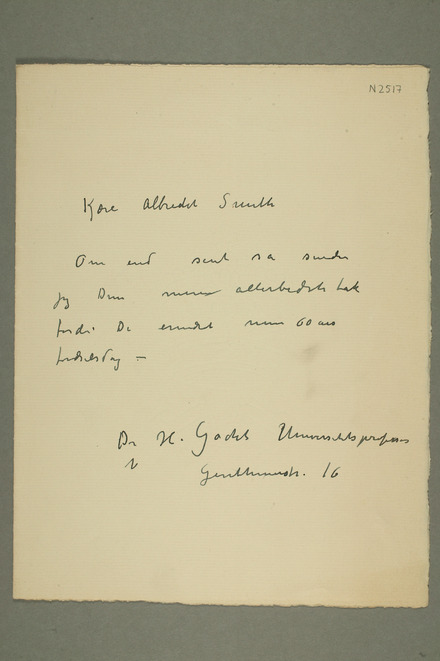 N2517
Kjære Albrecht Smith
Om end sent så sender
jeg Dem min allerbedste tak
fordi De erindret min 60 års
fødselsdag –
Dr H. Universitetsprofessor
16